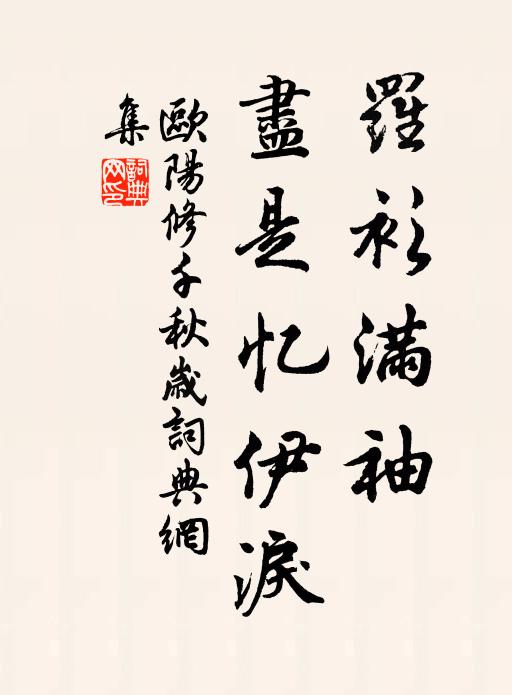 羅衫滿袖
盡是忆伊淚
歐陽修千秋歲詞典網
集
詞典
网印